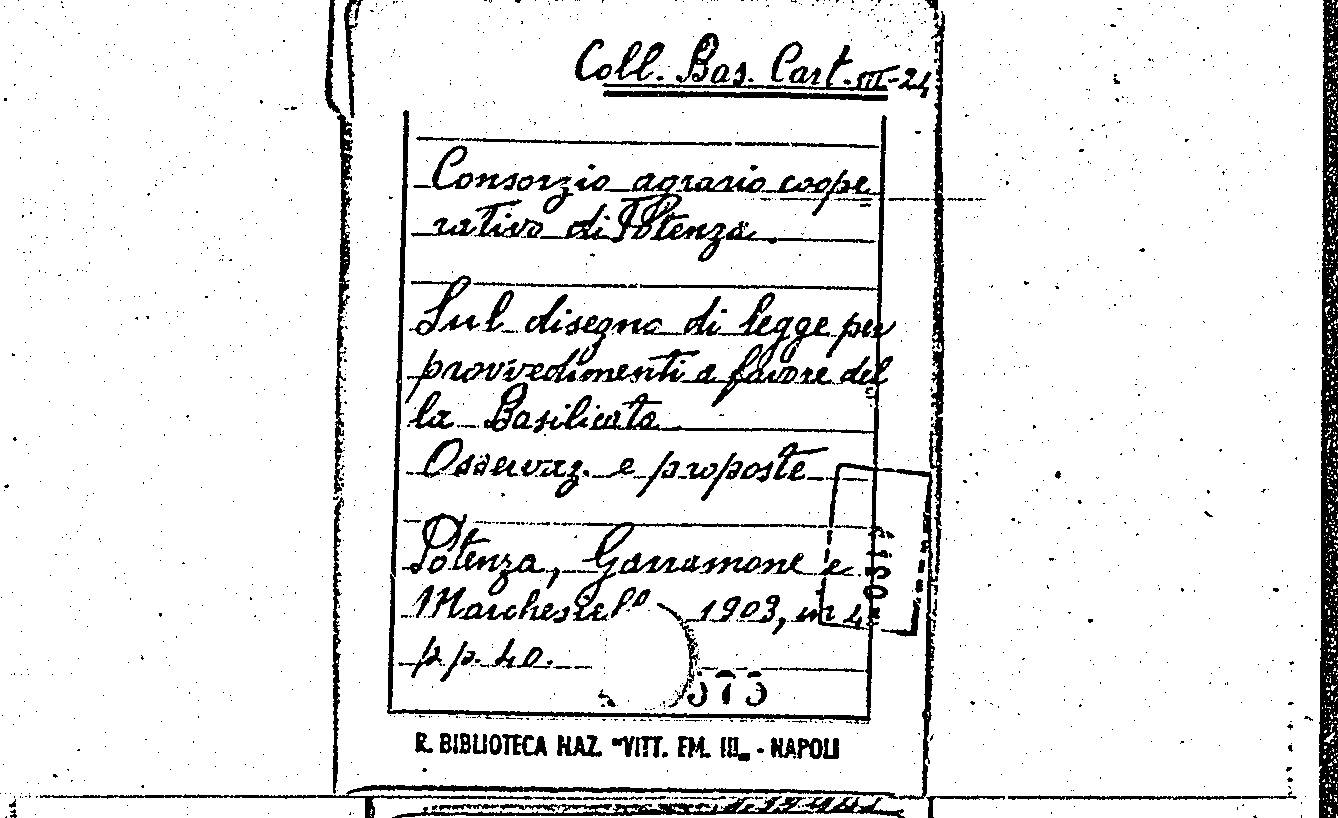 Coll. Bas. Cart. III-24
Consorzio agrario coope
rativo di Potenza.
Sul disegno di legge per
provvedimenti a favore del
la Basilicata
Osservaz. e proposte
Potenza, Garramone e
1903, in 4°
pp. 40.
R. BIBLIOTECA NAZ. "VITT. EM. III„ - NAPOLI